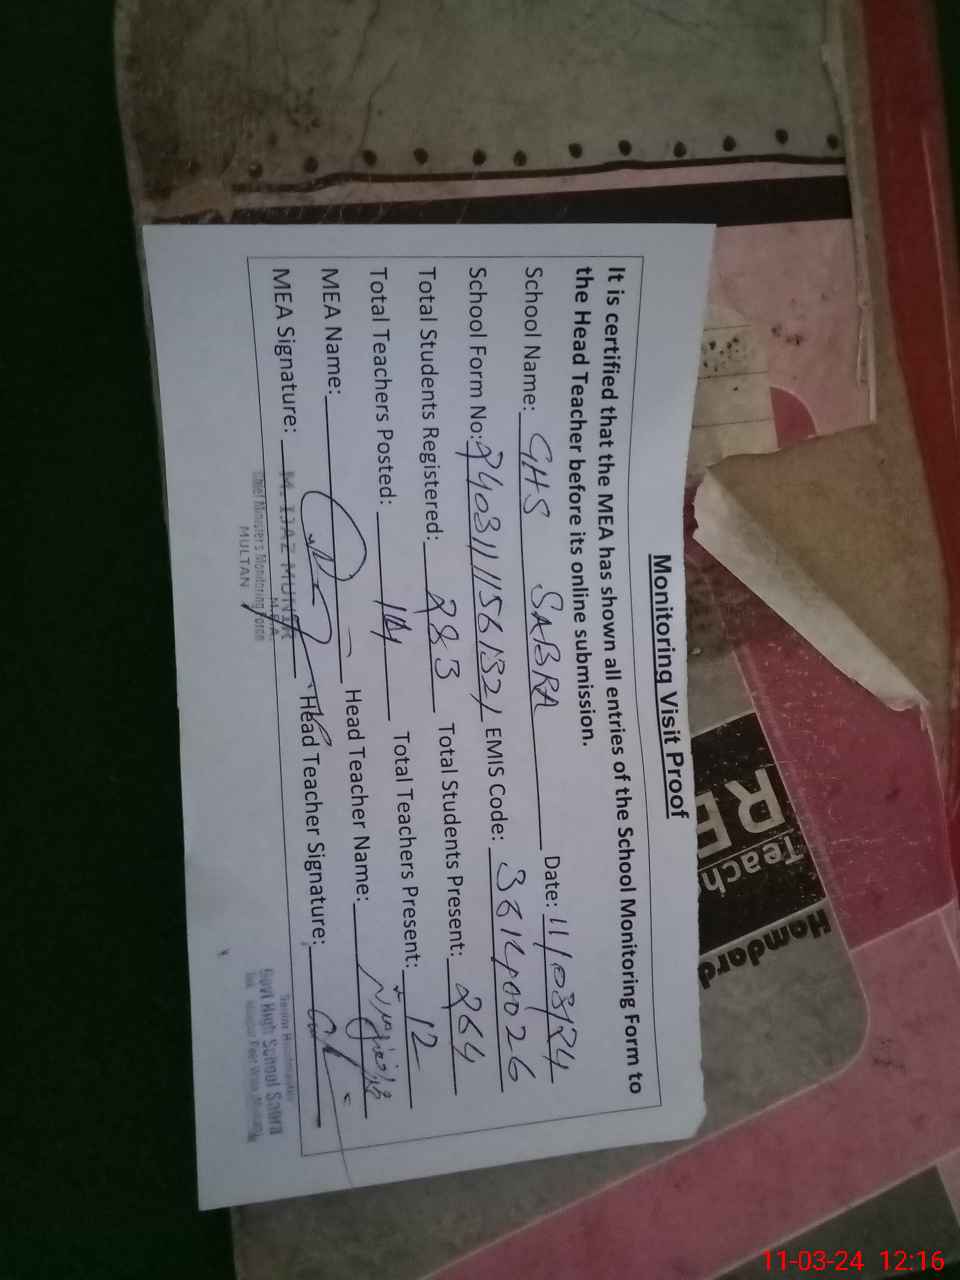 Monitoring Visit Proof
It is certified that the MEA has shown all entries of the School Monitoring Form to
the Head Teacher before its online submission.
School Name: GHS SABRA Date: 11/03/24
School Form No: EMIS Code:
Total Students Registered: 283 Total Students Present: 264
Total Teachers Posted: 14 Total Teachers Present: 12
MEA Name: Head Teacher Name:
MEA Signature: Head Teacher Signature:
M. IJAZ MUNIR
MEA
Chief Minister's Monitoring Force
MULTAN
Senior Headmaster
Govt High School Sabra
Hamdard
Teach
RE
11-03-24 12:16